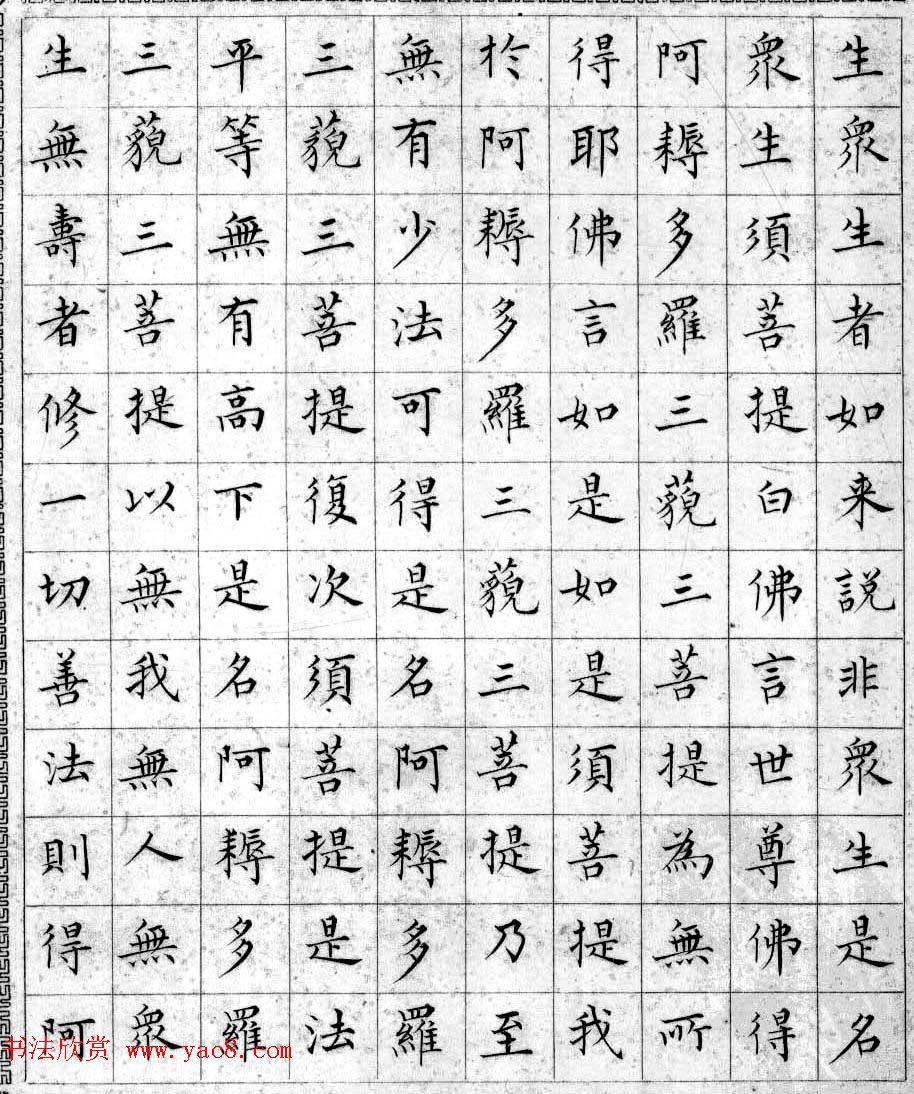 生眾生者如来説非眾生是名
眾生須菩提白佛言世尊佛得
阿耨多羅三藐三菩提為無所
得耶佛言如是如是須菩提我
於阿耨多羅三藐三菩提乃至
無有少法可得是名阿耨多羅
三藐三菩提復次須菩提是法
平等無有高下是名阿耨多羅
三藐三菩提以無我無人無眾
生無壽者修一切善法則得阿
书法欣赏 www.yao8.com